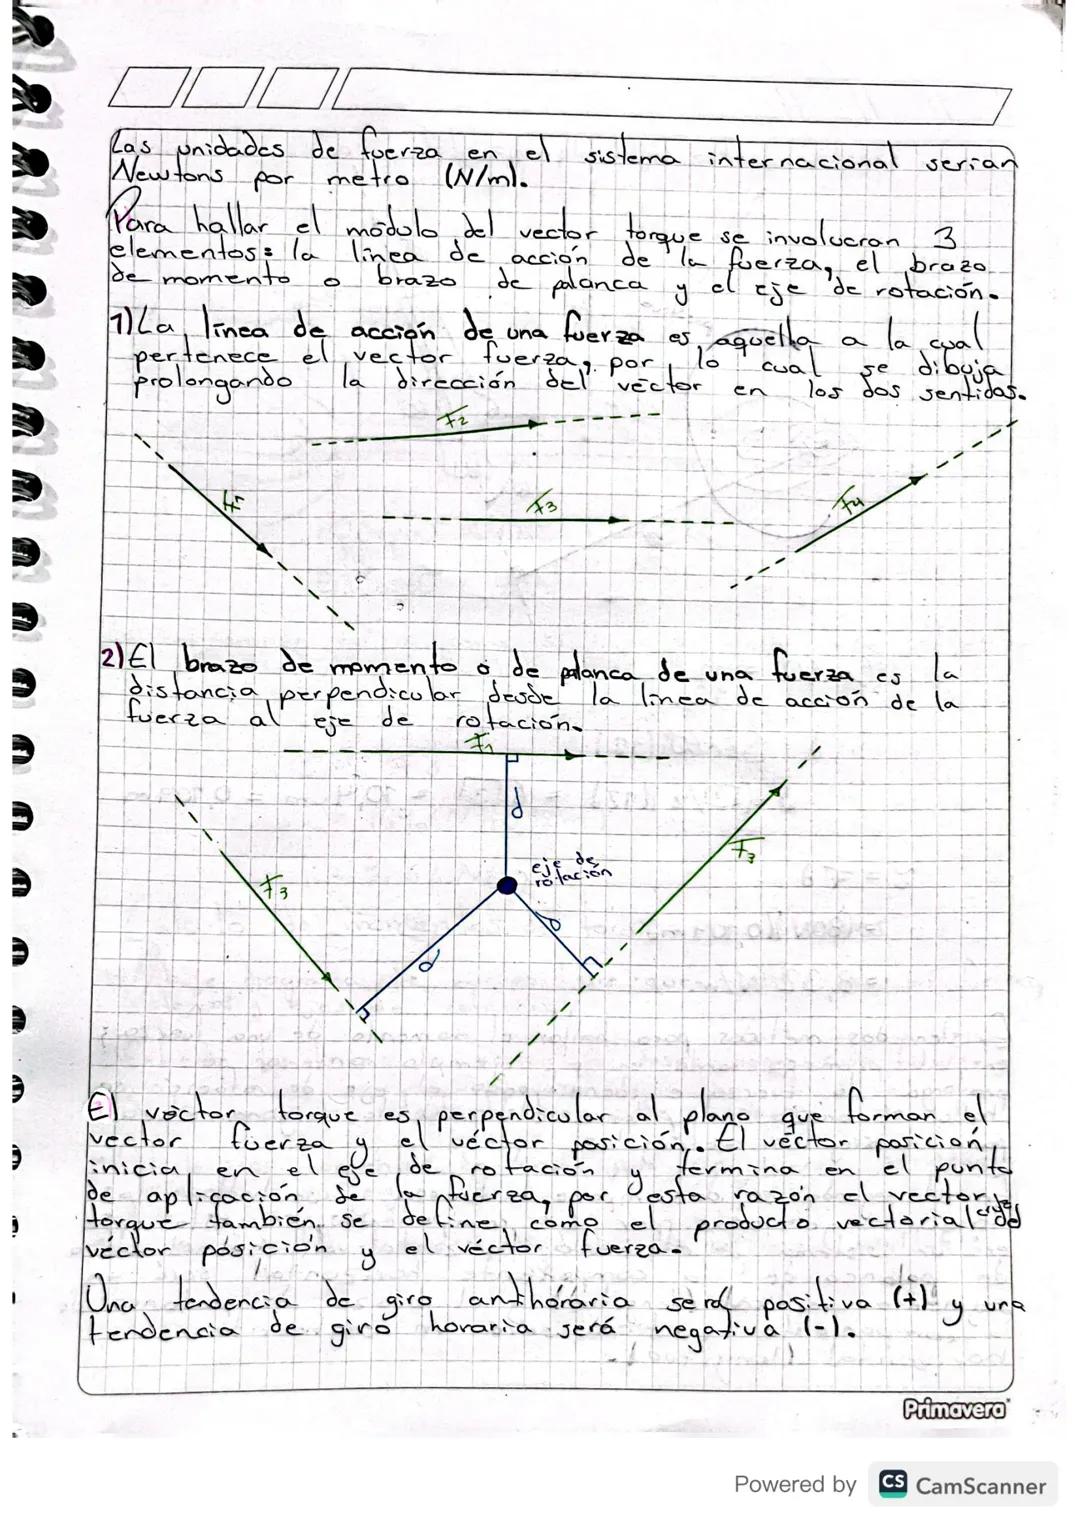 Las unidades de fuerza en el sistema internacional serian
Newtons por metro (N/m).
Para hallar el módulo del vector torque se involucran 3
elementos: la línea de acción de la fuerza, el brazo
de momento o brazo de palanca y el eje de rotación.
1) La línea de acción de una fuerza es aquella a la cual
pertenece el vector fuerza, por lo cual se dibuja
prolongando la dirección del vector en los dos sentidos.
F2
F1
F3
F4
2) El brazo de momento o de palanca de una fuerza es la
distancia perpendicular desde la línea de acción de la
fuerza al eje de rotación.
F1
d
F3
eje de
rotación
F3
d
d
El vector torque es perpendicular al plano que forman el
vector fuerza y el véctor posición. El véctor posición
inicia en el eje de rotación y termina en el punto
de aplicación de la fuerza, por esta razón el vector
torque también se define como el producto vectorial del
véctor posición y el véctor fuerza.
Una tendencia de giro antihoraria será positiva (+) y una
tendencia de giro horaria será negativa (-).
Primavera
Powered by CS CamScanner